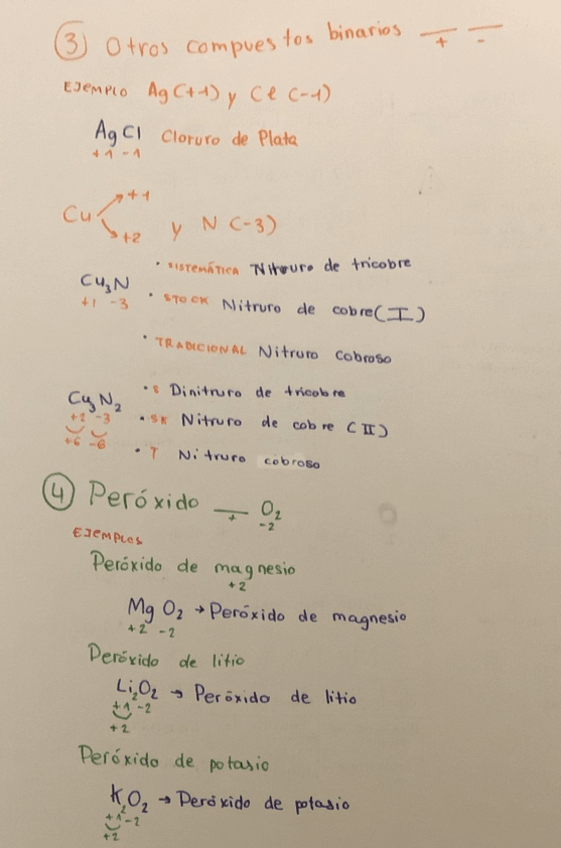 ③ Otros compuestos binarios _+_ _-_
EJEMPLO Ag(+1) y Cl (-1)
AgCl Cloruro de Plata
+1 -1
Cu +1
+2 y N (-3)
Cu₃N • SISTEMÁTICA Nitruro de tricobre
+1 -3 • STOCK Nitruro de cobre (I)
• TRADICIONAL Nitruro cobroso
Cu₃N₂ • S Dinitruro de tricobre
+2 -3 • SK Nitruro de cobre (II)
+6 -6 • T Nitruro cobroso
④ Peróxido _+_ O₂
-2
EJEMPLOS
Peróxido de magnesio
+2
MgO₂ → Peróxido de magnesio
+2 -2
Peróxido de litio
Li₂O₂ → Peróxido de litio
+1 -2
+2
Peróxido de potasio
K₂O₂ → Peróxido de potasio
+1 -2
+2